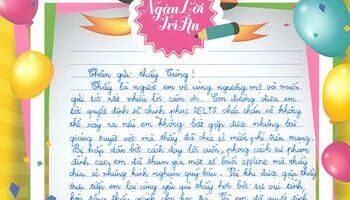 Ngàn Lời
Tri Ân
Thân gửi thầy Tùng!
Thầy là người em vô cùng ngưỡng mộ và muốn
gửi tới rất nhiều lời cảm ơn. Con đường đưa em
tới quyết định sẽ chinh phục IELTS chắc chắn sẽ không
thể xảy ra nếu em không bắt gặp được những bài
giảng tuyệt vời mà thầy đã chia sẻ miễn phí trên mạng.
Bị hấp dẫn bởi cách dạy lôi cuốn, phong cách sư phạm
đỉnh cao, em đã tham gia một số buổi offline mà thầy
chia sẻ những kinh nghiệm quý báu. Và khi được gặp thầy
trực tiếp em lại càng yêu quý thầy hơn bởi sự vui tính,
thầy dành cho học trò. Và em đã quyết định